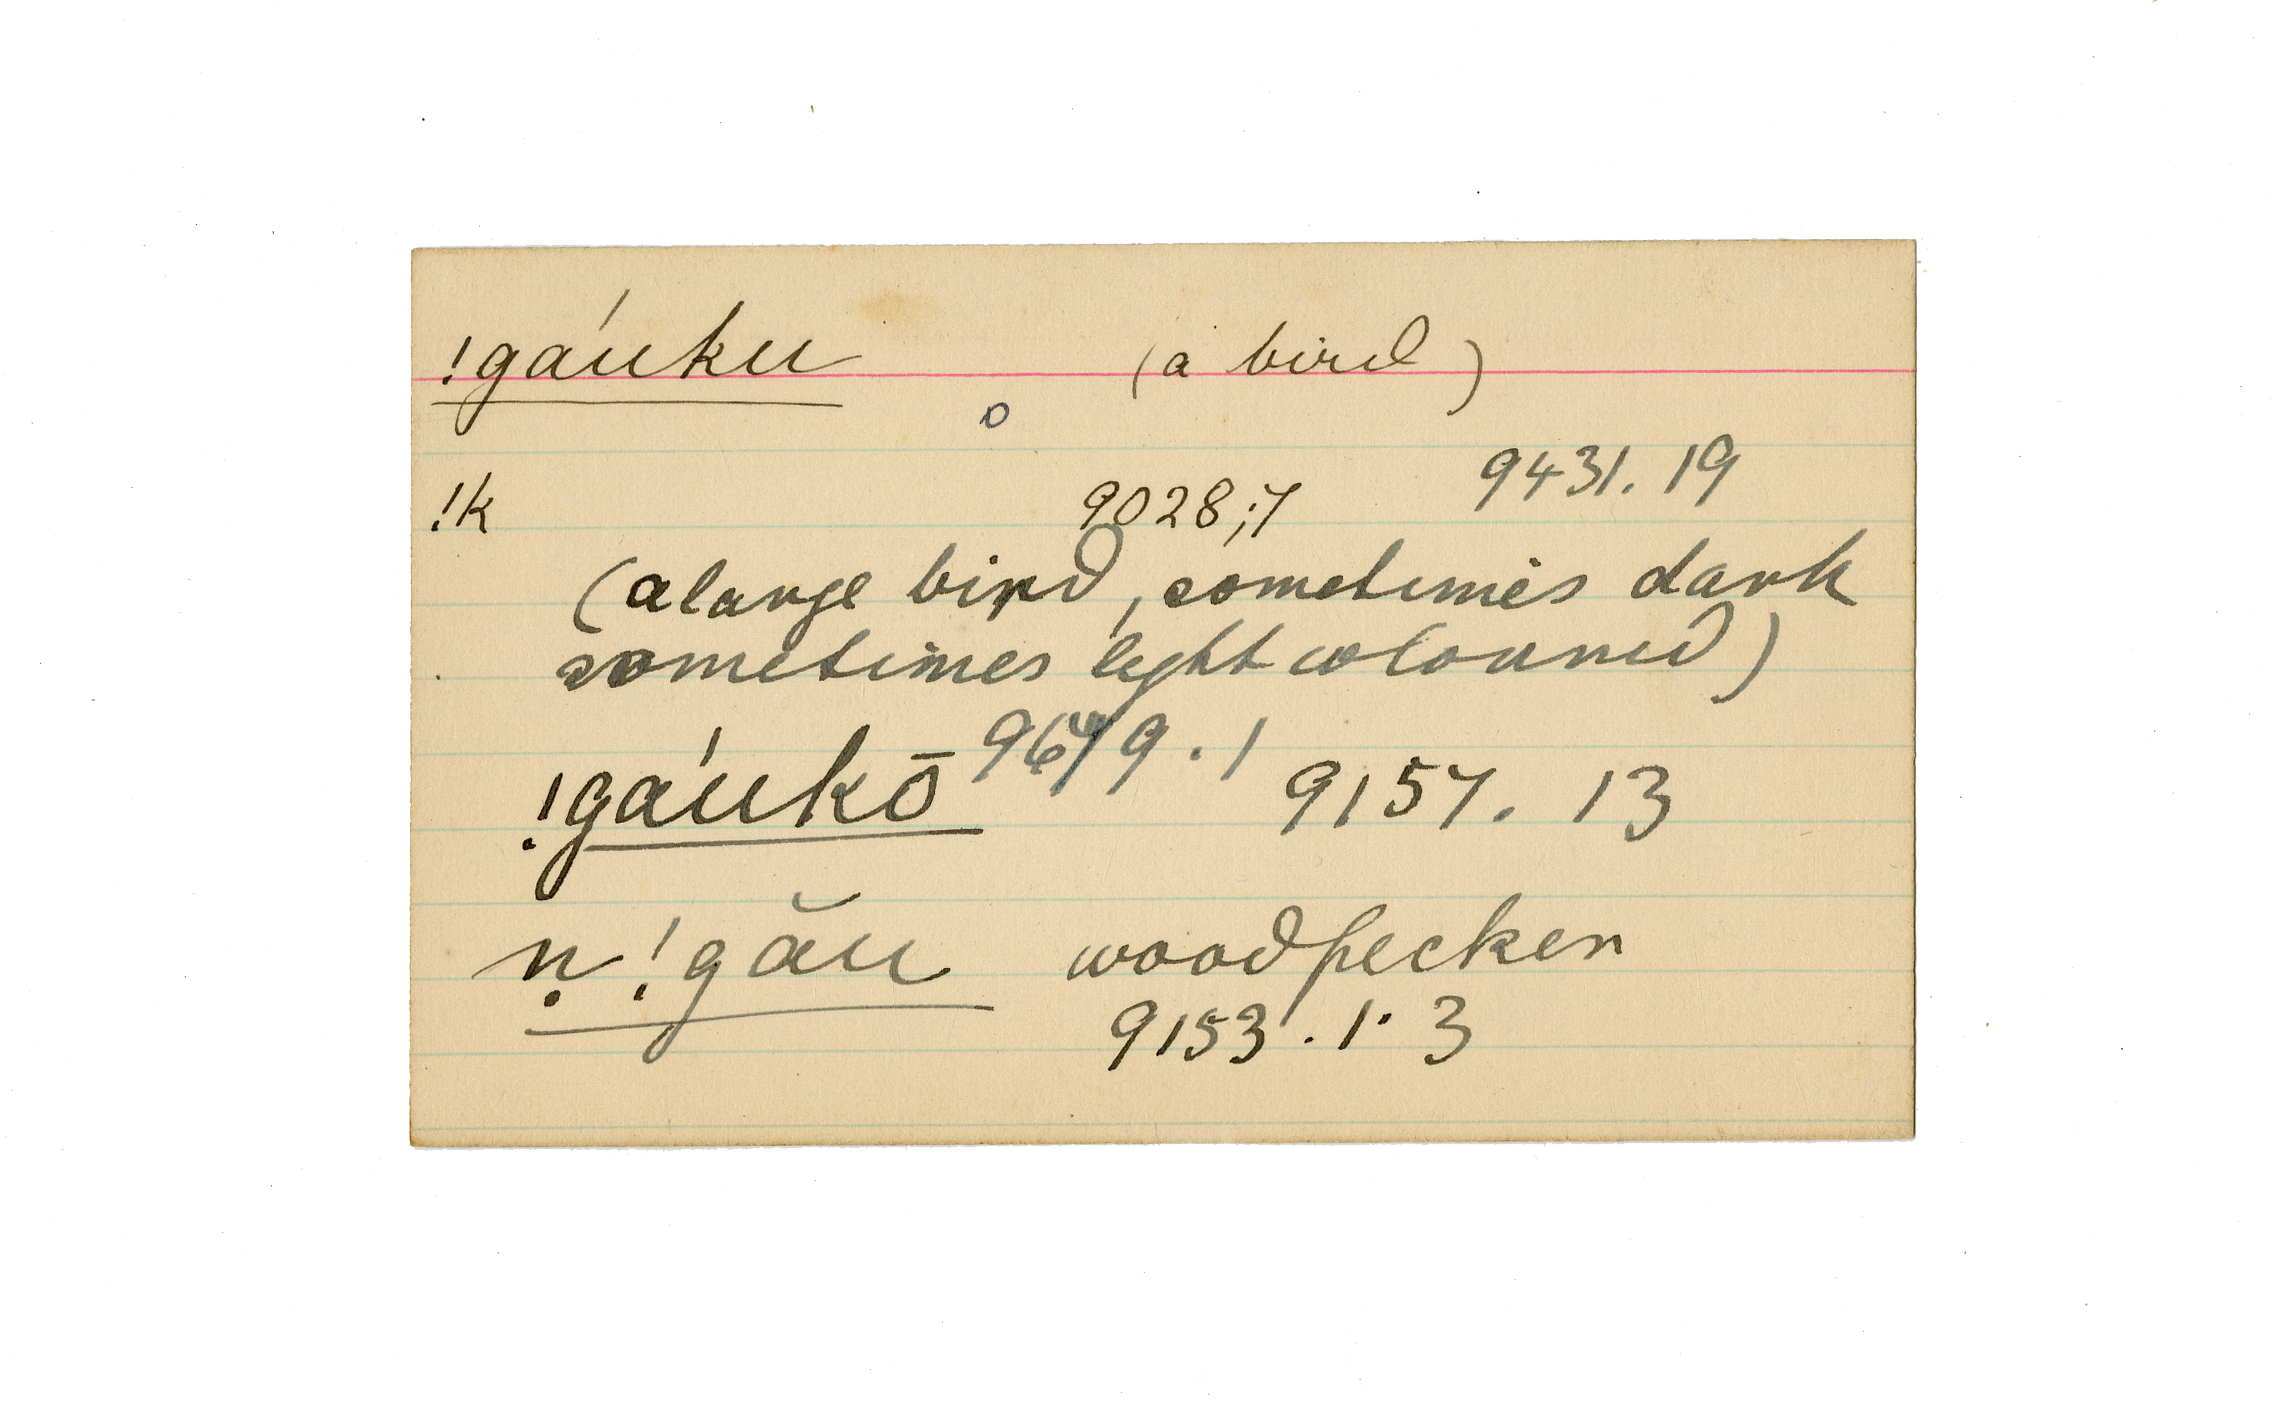 !gáuku (a bird)
o
!k 9028;7 9431.19
(a large bird, sometimes dark
sometimes light coloured)
!gáukō 9157. 13
ṇ !gău woodpecker
9153.1.3